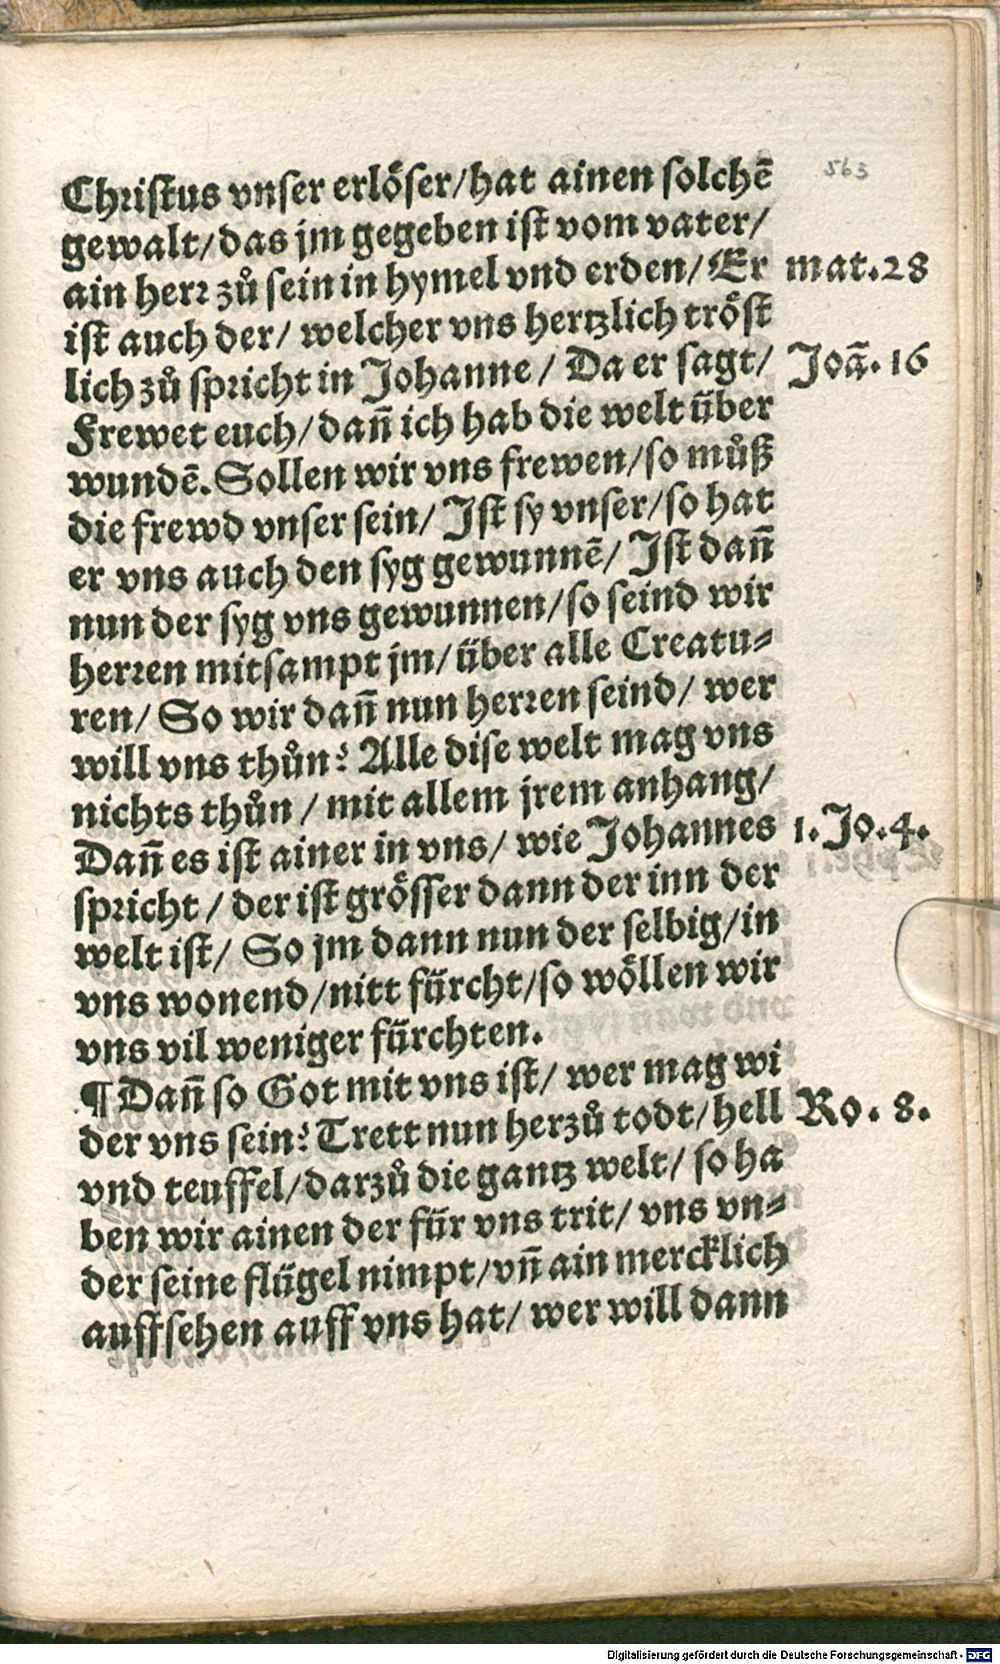 563
Christus vnser erlöser/hat ainen solchē
gewalt/das jm gegeben ist vom vater/
ain herr zů sein in hymel vnd erden/Er mat.28
ist auch der/ welcher vns hertzlich tröst
lich zů spricht in Johanne/ Da er sagt/ Joā.16
Frewet euch/dañ ich hab die welt über
wundē. Sollen wir vns frewen/so můß
die frewd vnser sein/ Ist sy vnser/so hat
er vns auch den syg gewunnē/ Ist dañ
nun der syg vns gewunnen/so seind wir
herren mitsampt jm/über alle Creatu-
ren/ So wir dañ nun herren seind/ wer
will vns thůn? Alle dise welt mag vns
nichts thůn / mit allem jrem anhang/
Dañ es ist ainer in vns/ wie Johannes 1.Jo.4.
spricht/ der ist grösser dann der inn der
welt ist/ So jm dann nun der selbig/in
vns wonend/nitt fürcht/so wöllen wir
vns vil weniger fürchten.
¶ Dañ so Got mit vns ist/ wer mag wi
der vns sein? Trett nun herzů todt/hell Ro. 8.
vnd teuffel/darzů die gantz welt/ so ha
ben wir ainen der für vns trit/ vns vn-
der seine flügel nimpt/vñ ain mercklich
auffsehen auff vns hat/ wer will dann
Digitalisierung gefördert durch die Deutsche Forschungsgemeinschaft - DFG